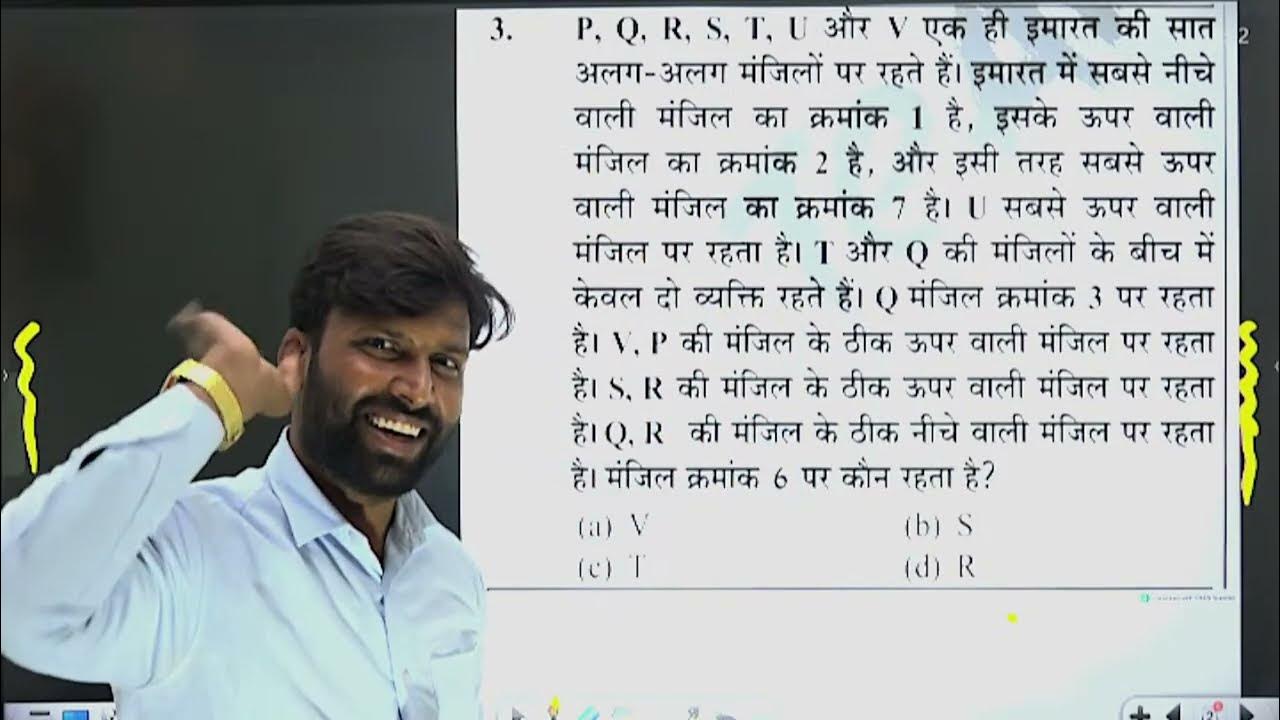 3. P, Q, R, S, T, U और V एक ही इमारत की सात
अलग-अलग मंजिलों पर रहते हैं। इमारत में सबसे नीचे
वाली मंजिल का क्रमांक 1 है, इसके ऊपर वाली
मंजिल का क्रमांक 2 है, और इसी तरह सबसे ऊपर
वाली मंजिल का क्रमांक 7 है। U सबसे ऊपर वाली
मंजिल पर रहता है। T और Q की मंजिलों के बीच में
केवल दो व्यक्ति रहते हैं। Q मंजिल क्रमांक 3 पर रहता
है। V, P की मंजिल के ठीक ऊपर वाली मंजिल पर रहता
है। S, R की मंजिल के ठीक ऊपर वाली मंजिल पर रहता
है। Q, R की मंजिल के ठीक नीचे वाली मंजिल पर रहता
है। मंजिल क्रमांक 6 पर कौन रहता है?
(a) V (b) S
(c) T (d) R
2